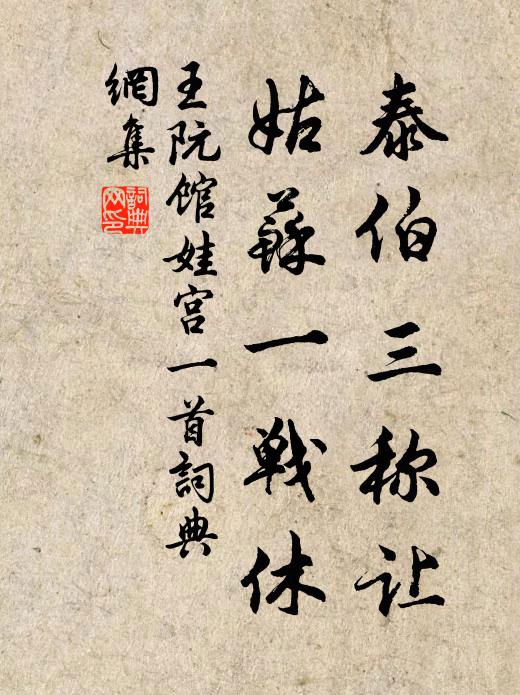 泰伯三称让
姑蘇一戦休
王阮馆娃宫一首詞典
網集
詞典网印